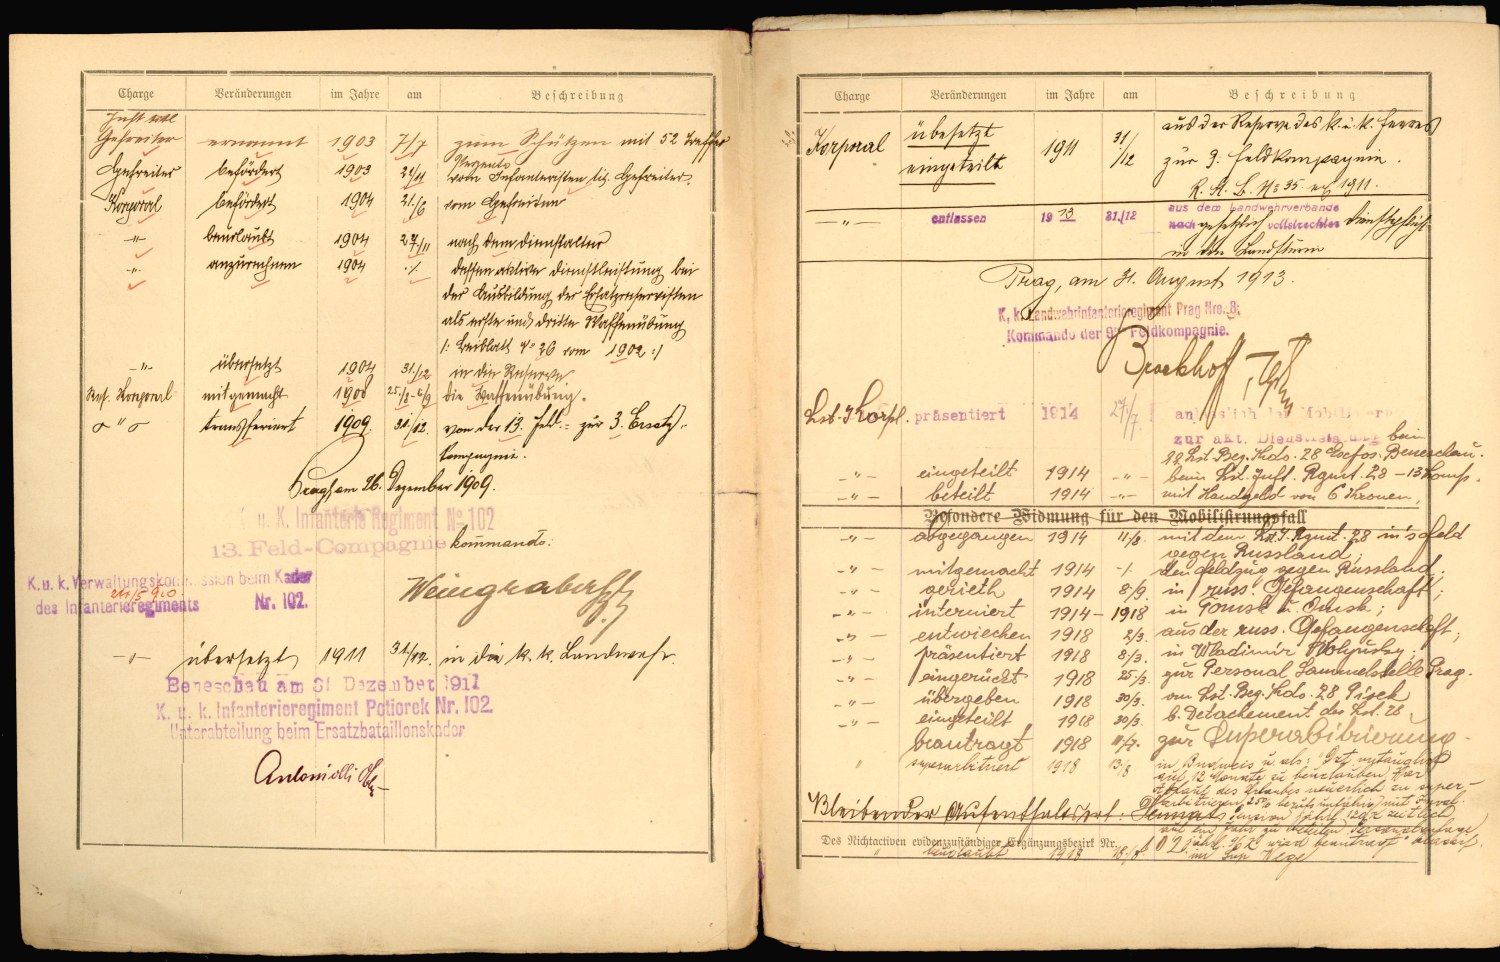 Charge Veränderungen im Jahre am Beschreibung
Gefreiter ernannt 1903 7/7 zum Schützen mit 52 Treffer
Gefreiter befördert 1903 vom Infanteristen tit. Gefreiter.
Korporal befördert 1904 21./6 vom Gefreiten
-"- beurlaubt 1904 27/11 nach dem Dienstalter
-"- anzurechnen 1904 ./. dessen aktive Dienstleistung bei
der Ausbildung der Ersatzreservisten
als erste und dritte Waffenübung
/: Beiblatt No 26 vom 1902 :/
-"- übersetzt 1904 31./12 in die Reserve
Res. Korporal mitgemacht 1908 die Waffenübung.
transferiert 1909 31./12. von der 13. Feld- zur 3. Ersatz-
kompagnie.
Prag, am 26. Dezember 1909.
u. K. Infanterie Regiment No 102
13. Feld-Compagnie kommando:
K. u. k. Verwaltungskommission beim Kader
des Infanterieregiments Nr. 102.
Weingraber
-"- übersetzt 1911 31./12. in die k. k. Landwehr.
Beneschau am 31 Dezember 1911
K. u. k. Infanterieregiment Potiorek Nr. 102.
Unterabteilung beim Ersatzbataillonskader
Antoniolli
Charge Veränderungen im Jahre am Beschreibung
Korporal übersetzt 1911 31/12 aus der Reserve des k. u. k. Heeres
eingeteilt zur 9. Feldkompagnie.
1911.
-"- entlassen 1913 31./12 aus dem Landwehrverbande
nach gesetzlich vollstreckter Dienstpflicht
in den Landsturm
Prag, am 31. August 1913.
K. k. Landwehrinfanterieregiment Prag Nro. 8:
Kommando der 9ten Feldkompagnie.
Brockhoff
Lst. I Korpl. präsentiert 1914 27./7. anlässlich der Mobilisierung
zur akt. Dienstleistung beim
Lst. Bez. Kdo. 28 Beneschau.
-"- eingeteilt 1914 -"- beim Lst. Inft. Rgmt. 28 – 13 Komp.
-"- beteilt 1914 -"- mit Handgeld von 6 Kronen,
Besondere Widmung für den Mobilisirungsfall
-"- abgegangen 1914 11/8. mit dem Lst. I. Rgmt. 28 in's Feld
gegen Russland;
-"- mitgemacht 1914 -/. den Feldzug gegen Russland;
-"- gerieth 1914 8/9. in russ. Gefangenschaft;
-"- interniert 1914–1918 in Tomsk u. Omsk;
-"- entwiechen 1918 2/3. aus der russ. Gefangenschaft;
-"- präsentiert 1918 8/3. in Wladimir Wolynsky;
-"- eingerückt 1918 25/3. zur Personal Sammelstelle Prag.
-"- übergeben 1918 30/3. an Lst. Bez. Kdo. 28 Pisek
-"- eingeteilt 1918 30/3. b. Detachement des Lst. 28
beantragt 1918 11/7. zur Superarbitrierung.
" superarbitriert 1918 13/8. in Budweis u. als:
auf 12 Monate zu beurlauben, vor
Ablauf des Urlaubes neuerlich zu super-
Bleibender Aufenthaltsort:
Des Nichtactiven evidenzzuständiger Ergänzungsbezirk Nr. 102
" beurlaubt 1918